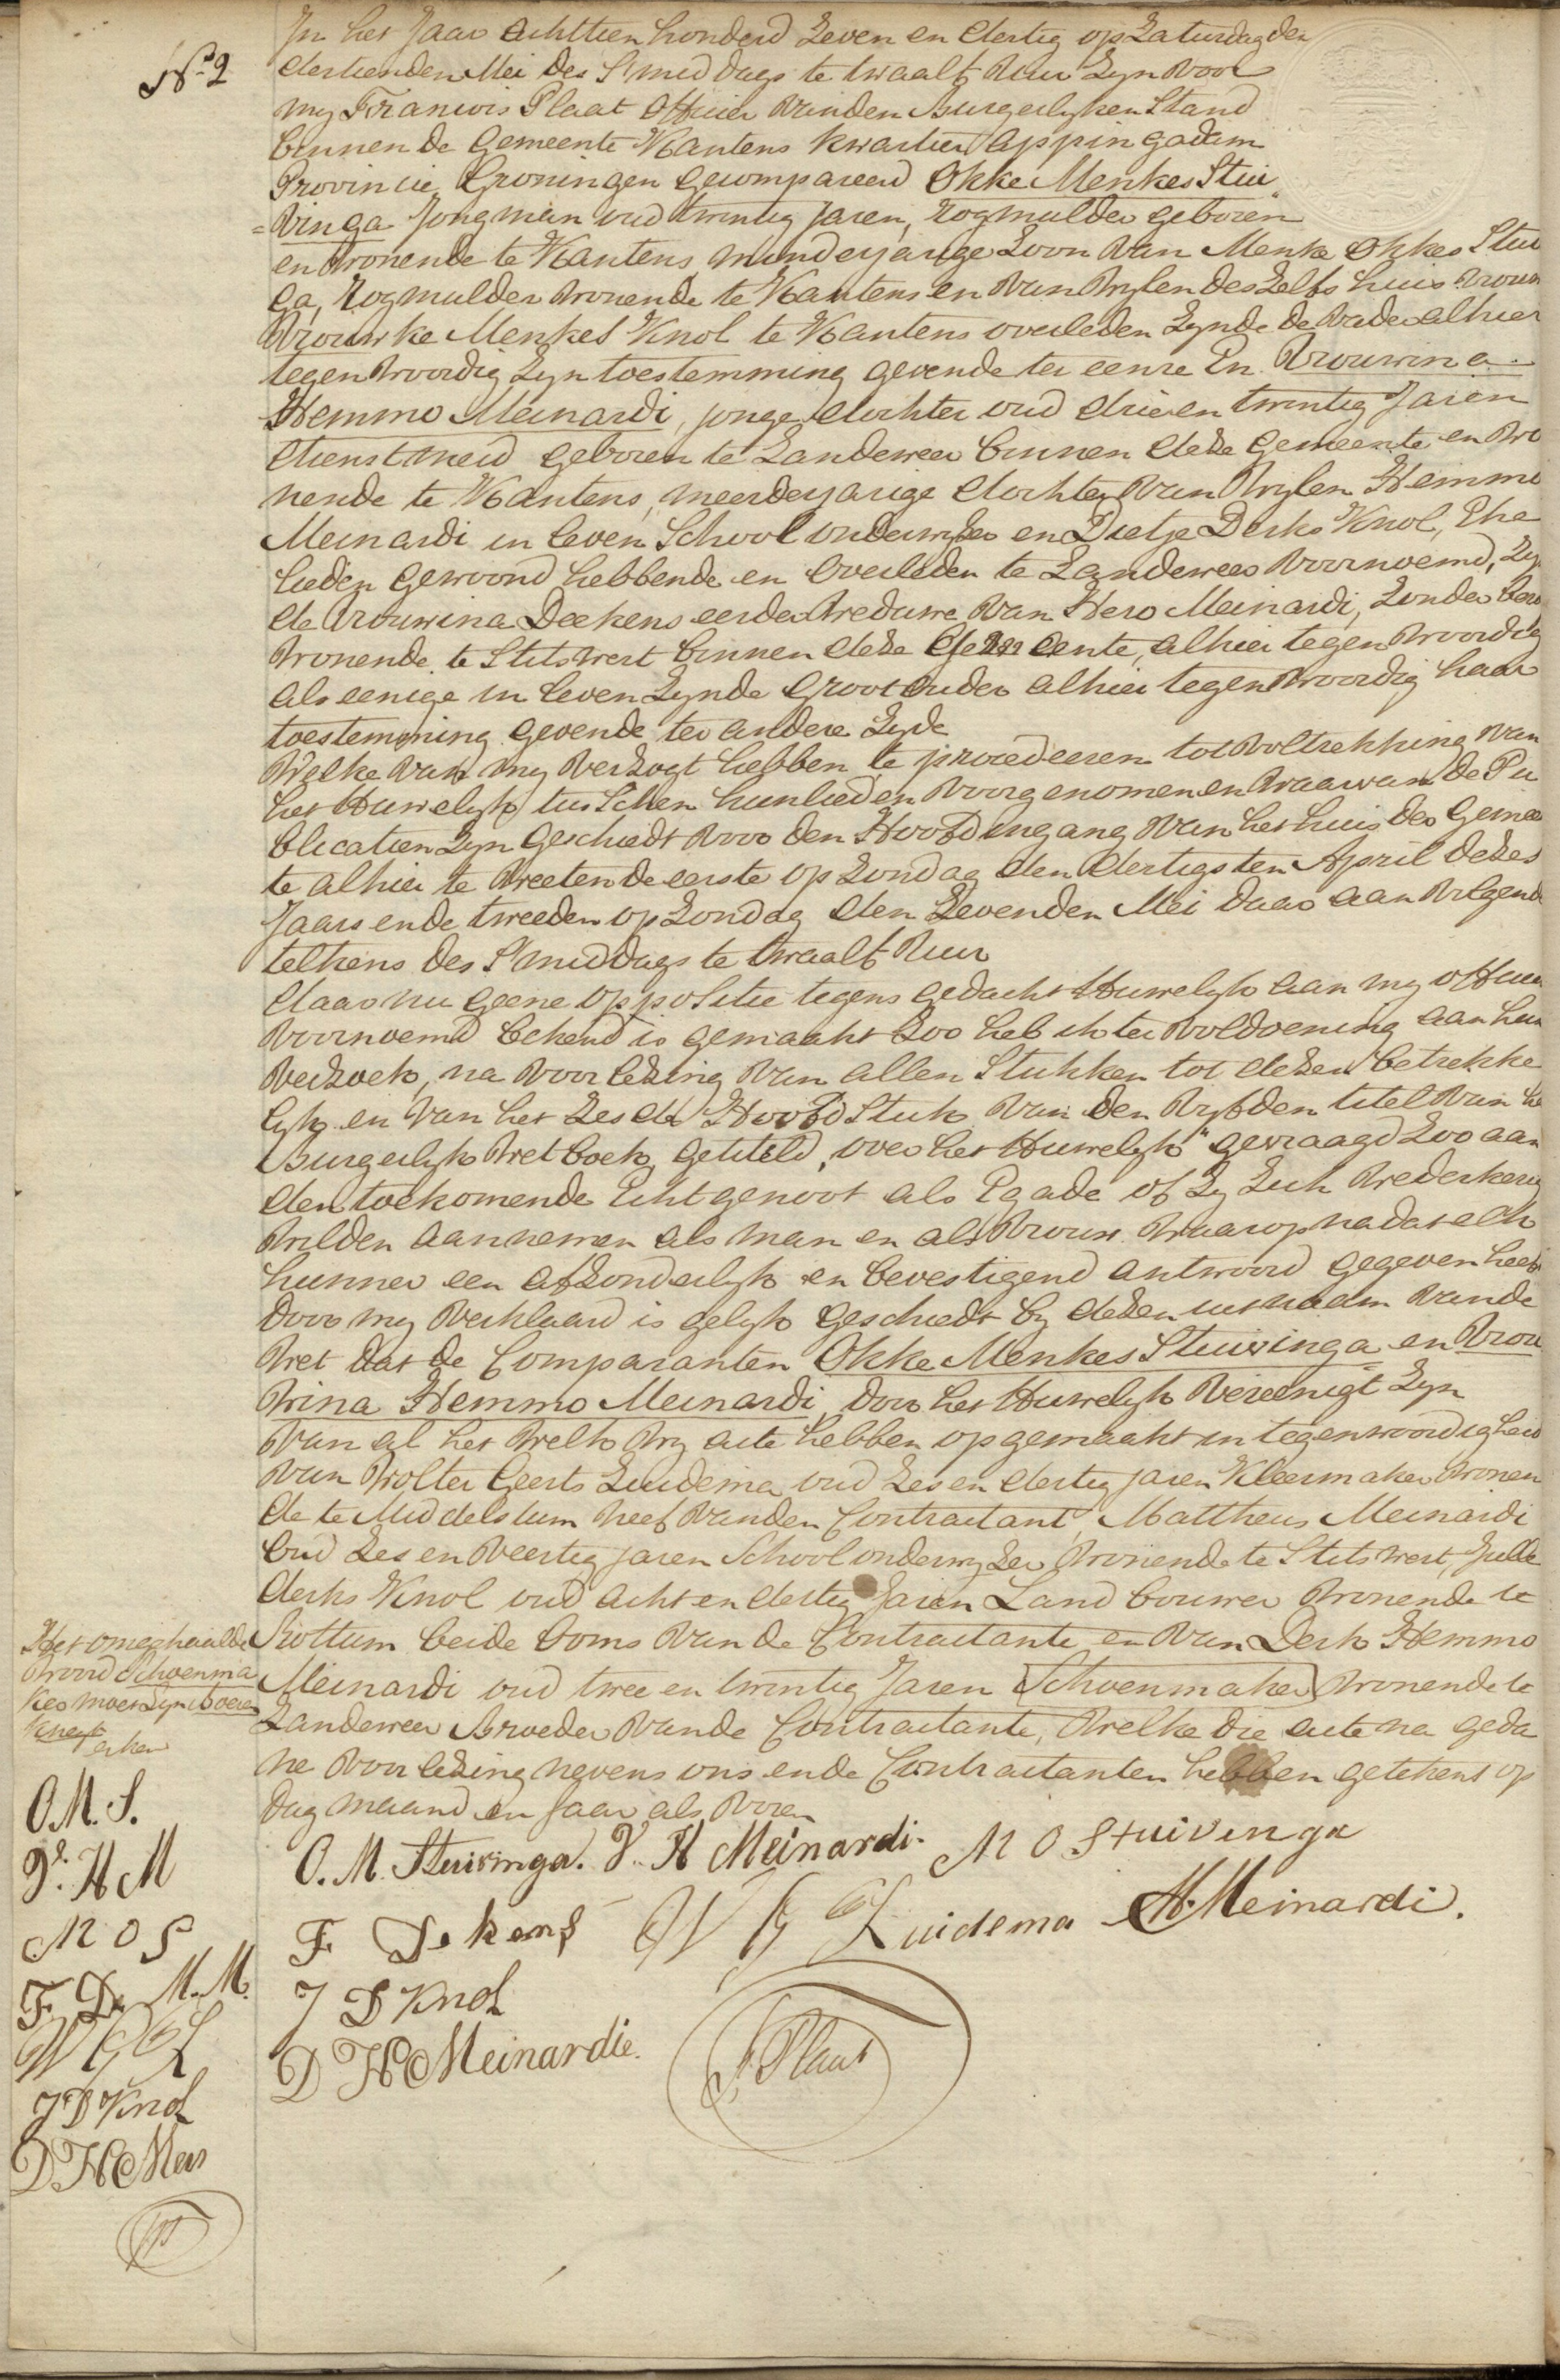 N.º 2
In het Jaar achttien honderd Zeven en dertig op Zaturdag den
dertienden Mei des S'middags te twaalf Uur Zyn voor
my Francois Plaat Officier van den Burgerlyken Stand
binnen de Gemeente Kantens kwartier Appingadam
Provincie Groningen gecompareerd Okke Menkes Stui
=vinga Jongman oud twintig Jaren, rogmulder geboren
en wonende te Kantens minderjarige Zoon van Menke Okkes Stui
ga, rogmulder wonende te Kantens en van wylen deszelfs huisvrouw
Vrouwke Menkes Knol te Kantens overleden Zynde de Vader alhier
tegenwoordig Zyn toestemming gevende ter eenre En Vrouwina
Hemmo Meinardi, jonge dochter oud drie en twintig Jaren
dienstmeid geboren te Zandeweer binnen deze Gemeente en wo
nende te Kantens, meerderjarige dochter van wylen Hemmo
Meinardi in leven Schoolonderwyzer en Dietje Derks Knol, Ehe
lieden gewoond hebbende en overleden te Zandeweer voornoemd, Zyn
de Vrouwina Deekens eerder Weduwe van Hero Meinardi, Zonder bero
wonende te Stitswert binnen deze Gemeente, alhier tegenwoordig
als eenige in leven Zynde Grootouder alhier tegenwoordig haar
toestemming gevende ter andere Zyde
Welke van my verzogt hebben te procedeeren tot voltrekking van
het Huwelyk tusschen hunlieden voorgenomen en waarvan de Pu
blicatien Zyn geschiedt voor den Hoofdingang van het huis der Gemeen
te alhier te weeten de eerste op Zondag den dertigsten April dezes
Jaars en de tweeden op Zondag den Zevenden Mei daar aan volgende
telkens des S'middags te twaalf Uur
daar nu geene oppositie tegens gedacht Huwelyk aan my officier
voornoemd bekend is gemaakt Zoo heb ik ter voldoening aan hun
verzoek, na voorlezing van allen Stukken tot dezen betrekke
lyk en van het Zesde Hoofdstuk van den vyfden titel van he
Burgerlyk Wetboek, getiteld, over het Huwelyk" gevraagd Zoo aan
den toekomende Echtgenoot als Egade of Zy Zich Wederkerig
wilden aannemen als man en als Vrouw. Waarop nadat elk
hunner een afzonderlyk en bevestigend antwoord gegeven heeft
door my verklaard is gelyk geschiedt by dezen uit naam van de
Wet dat de Comparanten Okke Menkes Stuivinga en Vrou
wina Hemmo Meinardi, door het Huwelyk Vereenigt Zyn
Van al het Welk wy acte hebben opgemaakt in tegenwoordigheid
van Wolter Geerts Zuidema oud Zes en dertig jaren Kleermaker wonen
de te Middelstum neef van den Contractant, Mattheus Meinardi
oud Zes en Veertig jaren Schoolonderwyzer wonende te Stitswert, Julle
derks Knol oud acht en dertig Jaren Landbouwer wonende te
Rottum beide Ooms van de Contractante en van Derk Hemmo
Meinardi oud twee en twintig Jaren Schoenmaker wonende te
Zandeweer Broeder van de Contractante, Welke die acte na geda
ne voorlezing nevens ons en de Contractanten hebben getekent op
dag maand en Jaar als voren
O. M. Stuivinga. V. H Meinardi. M O Stuivinga
F Dekens W G Zuidema M. Meinardi.
J D Knol
D H Meinardie. F Plaat
Het omgehaalde
woord Schoenma
ker moet Zyn boeren
knegt
O.M.S.
V. H M
M O S
F D. M.M.
W G Z
J D Knol
D H Mei